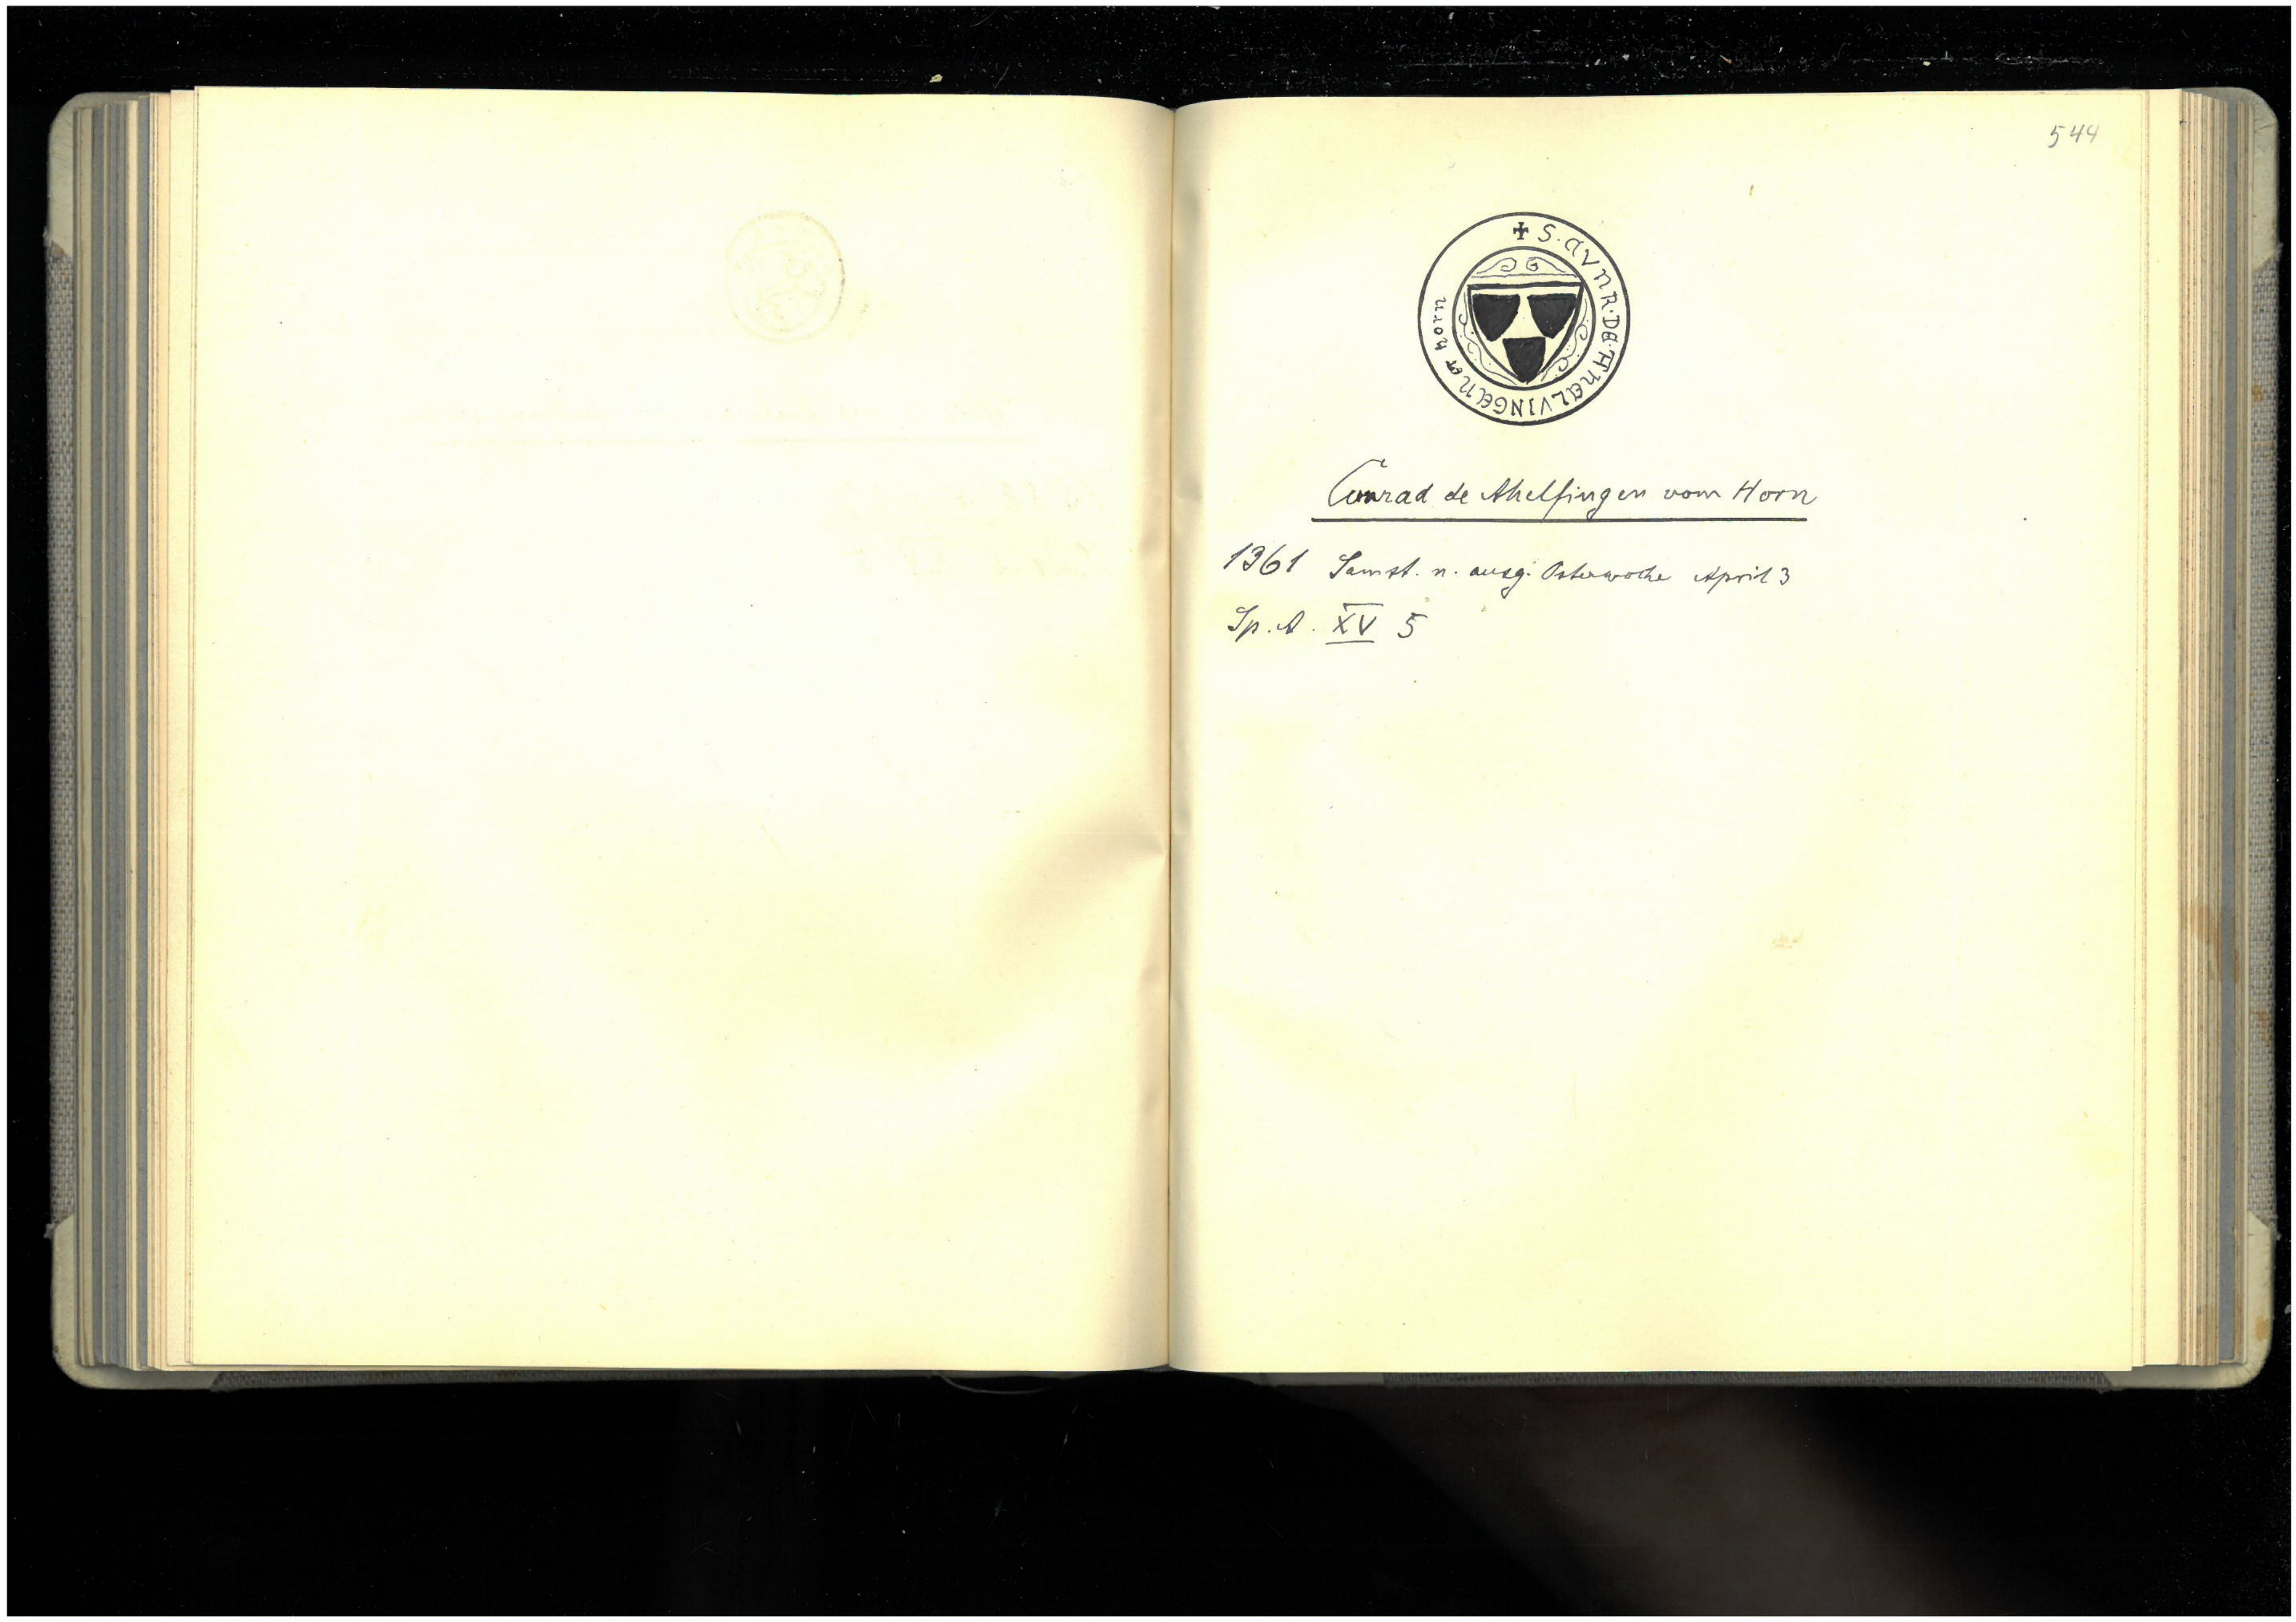 544
✠ S. CVNR. DE. AHELVINGEN ET HORN
Conrad de Ahelfingen vom Horn
1361 Samst. n. ausg. Osterwoche April 3
Sp. A. XV 5